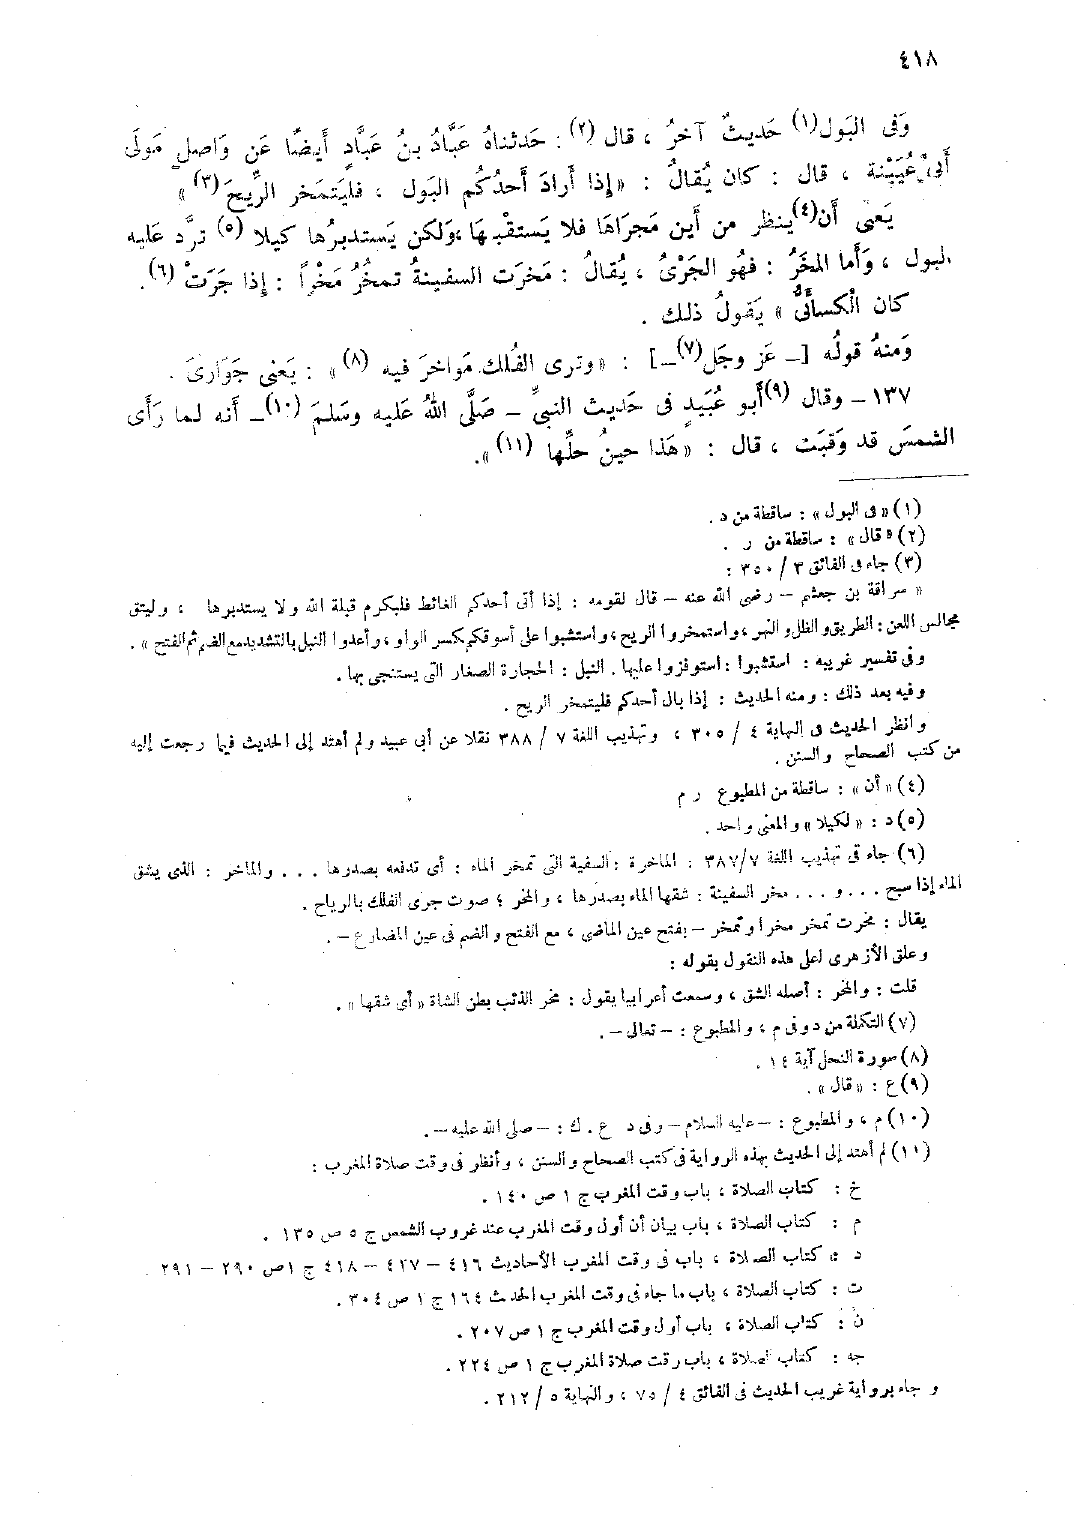 ٤١٨
وَفى البَول(١) حَديثٌ آخرُ ، قال (٢) : حَدثناهُ عَبَّادُ بنُ عَبَّادٍ أَيضًا عَن وَاصلٍ مَولَى
أَبى عُيَيْنة ، قال : كان يُقالُ : «إذا أَرادَ أَحدُكُم البَول ، فليَتمَخر الرِّيحَ(٣)»
يَعنى أَن(٤)ينظر من أَين مَجرَاهَا فلا يَستقبْهَا ،وَلكن يَستدبرُها كيلا (٥) ترَّد عَليه
البول ، وَأَما المخَرُ : فهُو الجَرْىُ ، يُقالُ : مَخرَت السفينةُ تمخُرُ مَخْراً : إذا جَرَتْ (٦).
كان الْكسائىُّ » يَقولُ ذلك .
وَمنهُ قولُه [ــ عَز وجَل(٧)ــ] : «وترى الفُلك مَواخرَ فيه (٨)» : يَعنى جَوَارىَ .
١٣٧ – وقال (٩)أَبو عُبَيدٍ فى حَديث النبىِّ – صَلَّى اللهُ عَليه وسَلمَ (١٠)ــ أَنه لما رَأَى
الشمسَ قد وَقبَت ، قال : «هَذا حينُ حلِّها (١١)».
(١) «فى البول» : ساقطة من د .
(٢) «قال» : ساقطة من ر .
(٣) جاء فى الفائق ٣ / ٣٥٠ :
« سراقة بن جعثم – رضى الله عنه – قال لقومه : إذا أتى أحدكم الغائط فليكرم قبلة الله ولا يستدبرها ، وليتق
مجالس اللعن : الطريق والظل والنهر ، واستمخروا الريح ، واستشبوا على أسوقكم بكسر الواو ، وأعدوا النبل بالتشديد مع الضم ثم الفتح » .
وفى تفسير غريبه : استشبوا : استوفزوا عليها . النبل : الحجارة الصغار التى يستنجى بها .
وفيه بعد ذلك : ومنه الحديث : إذا بال أحدكم فليتمخر الريح .
وانظر الحديث فى النهاية ٤ / ٣٠٥ ، وتهذيب اللغة ٧ / ٣٨٨ نقلا عن أبى عبيد ولم أهتد إلى الحديث فيما رجعت إليه
من كتب الصحاح والسنن .
(٤) «أن» : ساقطة من المطبوع ر م
(٥) د : «لكيلا» والمعنى واحد .
(٦) جاء فى تهذيب اللغة ٣٨٧/٧ : الماخرة : السفية التى تمخر الماء : أى تدفعه بصدرها . . . والماخر : الذى يشق
الماء إذا سبح . . . و . . . مخر السفينة : شقها الماء بصدرها ، والمخر ؛ صوت جرى الفلك بالرياح .
يقال : مخرت تمخر مخرا وتمخر – بفتح عين الماضى ، مع الفتح والضم فى عين المضارع – .
وعلق الأزهرى لعلى هذه النقول بقوله :
قلت : والمخر : أصله الشق ، وسمعت أعرابيا يقول : مخر الذئب بطن الشاة «أى شقها» .
(٧) التكملة من د وفى م ، والمطبوع : – تعالى – .
(٨) سورة النحل آية ١٤ .
(٩) ع : «قال» .
(١٠) م ، والمطبوع : – عليه السلام – وفى د ع . ك : – صلى الله عليه – .
(١١) لم أهتد إلى الحديث بهذه الرواية فى كتب الصحاح والسنن ، وأنظر فى وقت صلاة المغرب :
خ : كتاب الصلاة ، باب وقت المغرب ج ١ ص ١٤٠ .
م : كتاب الصلاة ، باب بيان أن أول وقت المغرب عند غروب الشمس ج ٥ ص ١٣٥ .
د : كتاب الصلاة ، باب فى وقت المغرب الأحاديث ٤١٦ – ٤٢٧ – ٤١٨ ج ١ص ٢٩٠ – ٢٩١ .
ت : كتاب الصلاة ، باب ما جاء فى وقت المغرب الحدث ١٦٤ ج ١ ص ٣٠٤ .
ن : كتاب الصلاة ، باب أول وقت المغرب ج ١ ص ٢٠٧ .
جه : كتاب الصلاة ، باب وقت صلاة المغرب ج ١ ص ٢٢٤ .
وجاء برواية غريب الحديث فى الفائق ٤ / ٧٥ ، والنهاية ٥ / ٢١٢ .